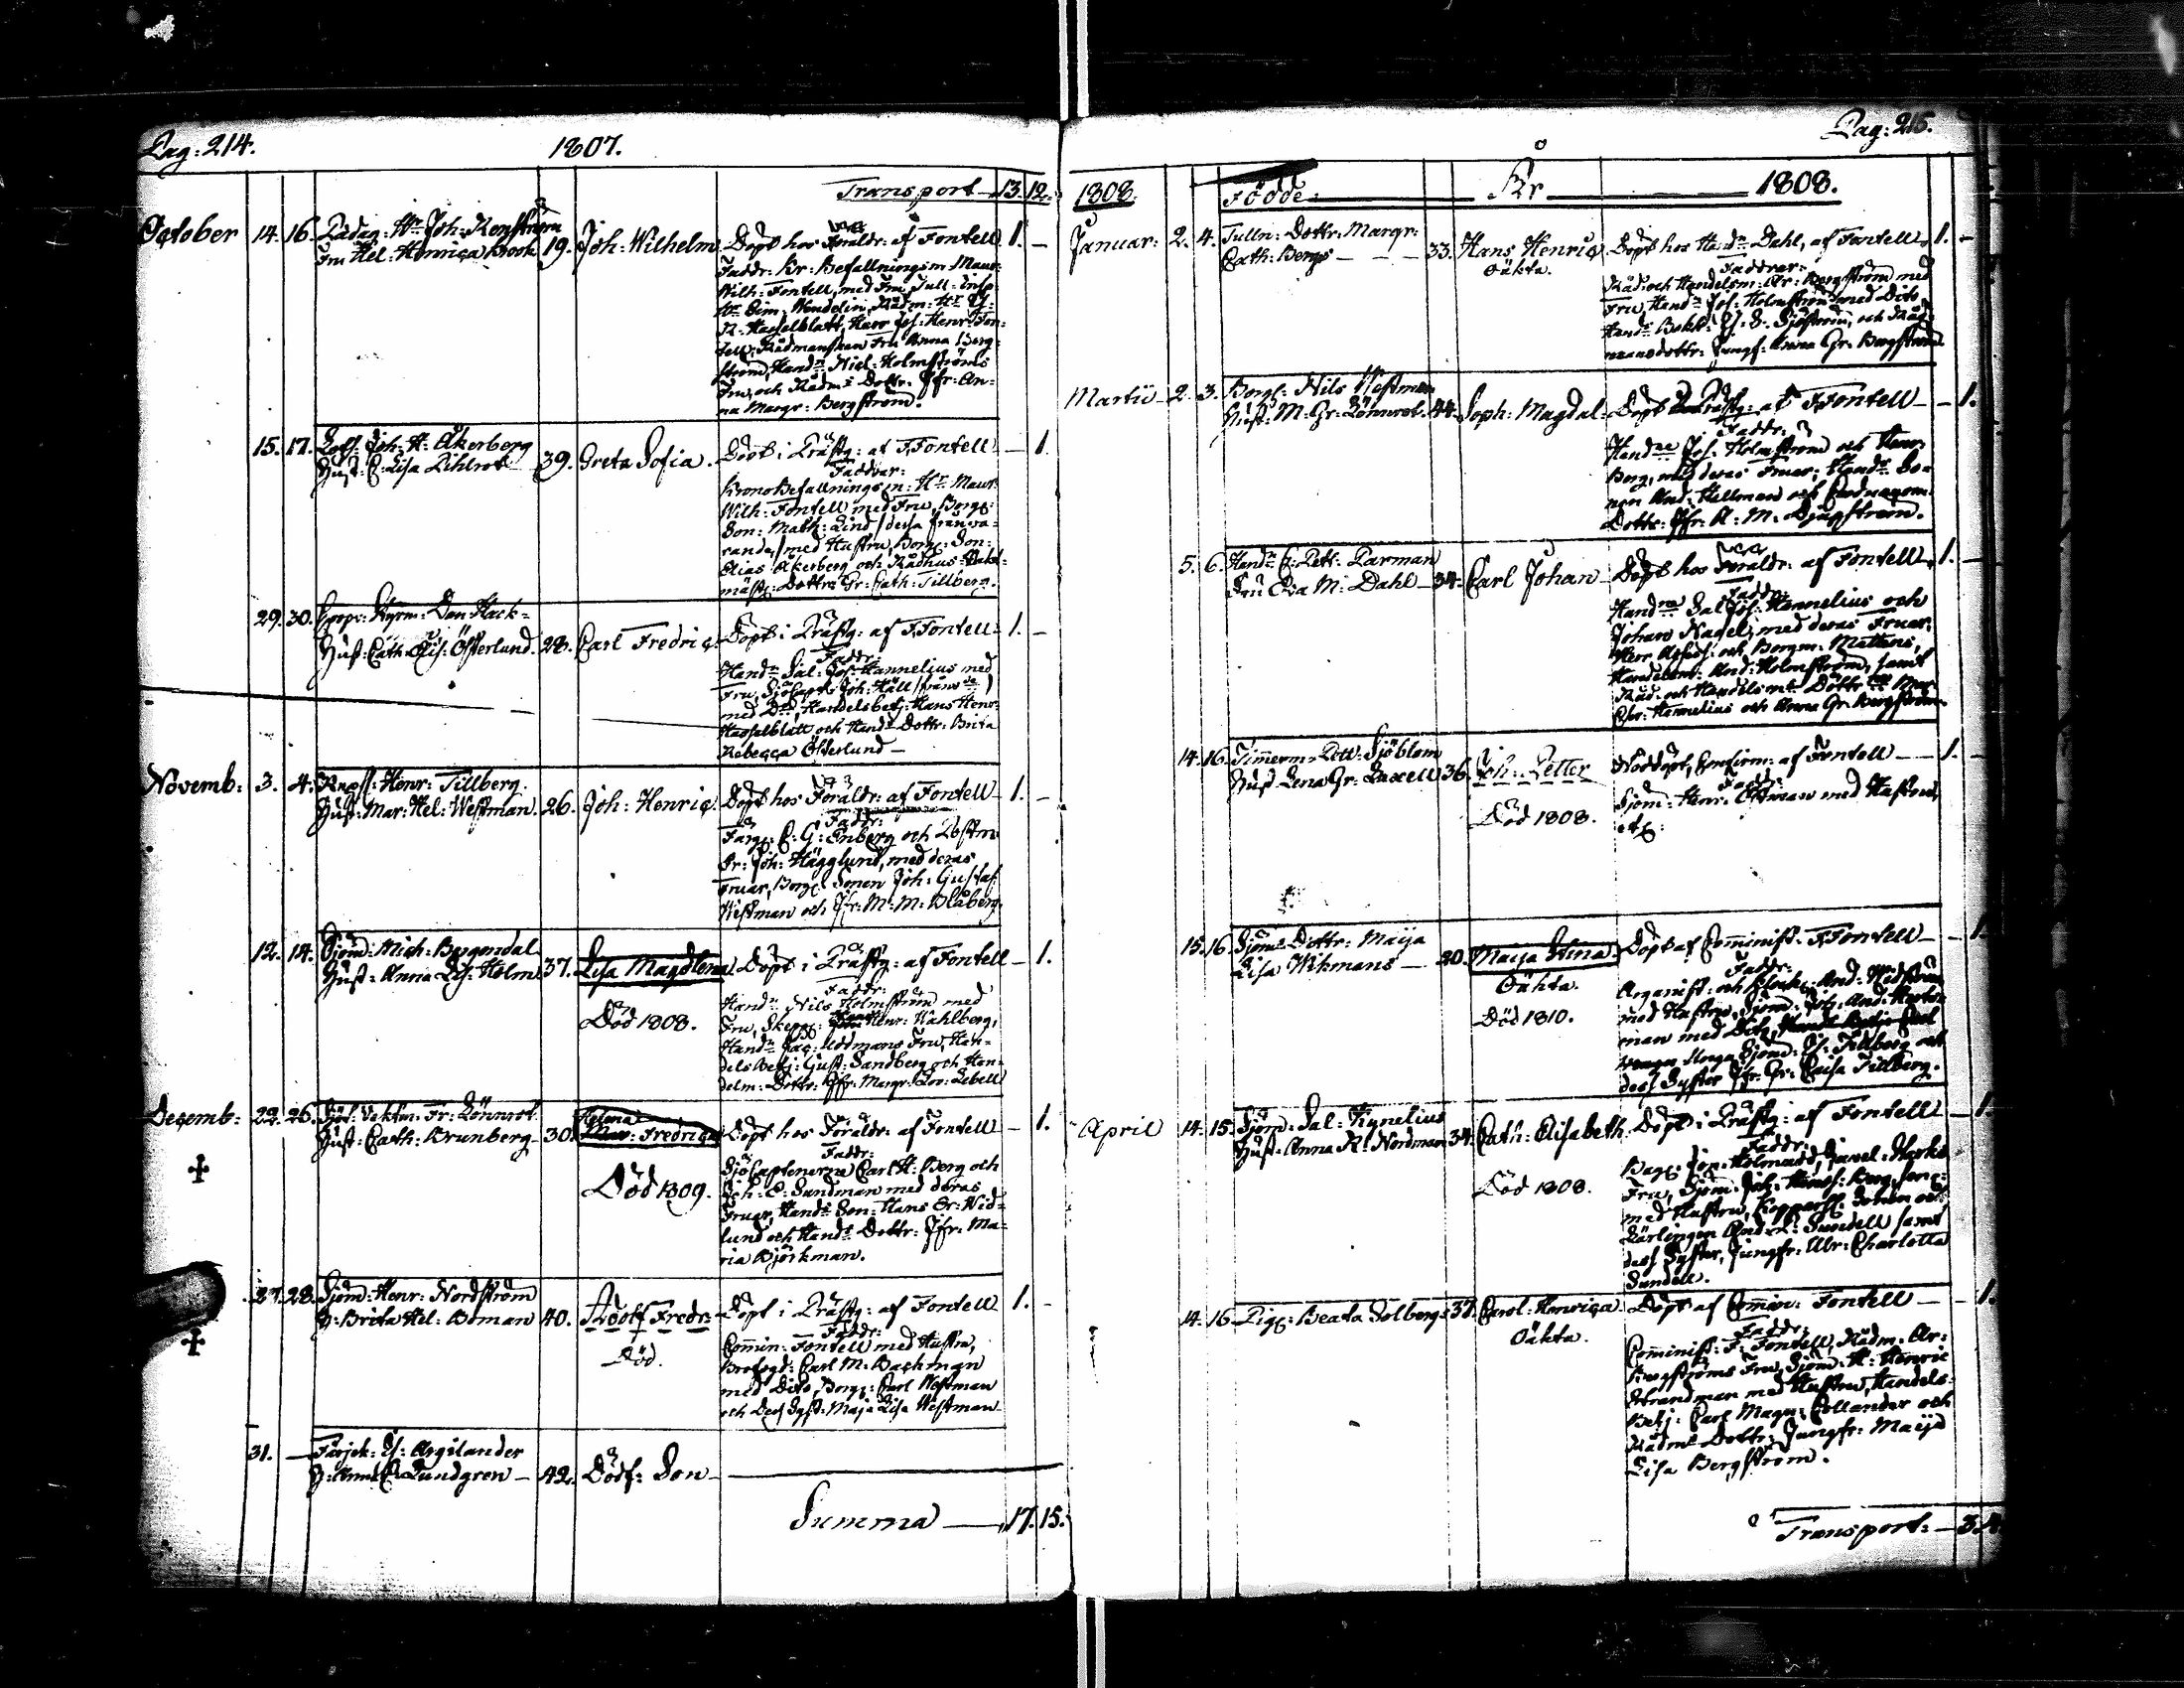 Pag: 214.
1807.
Transport 13. 12.
October 14. 16. Rådag: Hr Joh: Renström
Fru Hel: Henrica Brock 19. Joh: Wilhelm Döpt hos Föräldr: af Fontell 1. –
Faddr: Kr: Befallningsm: Maur:
Wilh: Fontell, med Fru, Tull-Insp:
Hr Sim: Wendelin, Rådm: Hr
Hasselblatt, Herr Jos: Henr: Fon-
tell, Rådmanskan Fru Anna Berg-
ström, Handn Niel: Holmströms
Fru, och Rådms Dottr: Jfr: An-
na Margr: Bergström.
15. 17. Lots: Joh: H: Åkerberg
Hust: C: Lisa Lihlrot 39. Greta Sofia. Döpt i Prästg: af F. Fontell – 1.
Faddrar:
Krono Befallningsm: Hr Maur:
Wilh: Fontell med Fru, Borg:
Son: Math: Lind /dessa frånva-
rande/ med Hustru, Borg: Son:
Elias Åkerberg och Rådhus-Vakt-
mäst: Dottr: Gr: Cath: Tillberg.
29. 30. Styrm: Dan Hack-
Hust: Cath: Lis: Österlund. 28. Carl Fredric. Döpt i Prästg: af F. Fontell 1. –
Faddr:
Handn Sal: Jos: Hannelius med
Fru, SjöCapt: Joh: Häll /frånvde/
med Do, Handelsbetj: Hans Henr:
Hasselblatt och Hands Dottr: Brita
Rebecca Österlund –
Novemb: 3. 4. Henr: Tillberg.
Hust: Mar: Hel: Westman. 26. Joh: Henric. Döpt hos Föräldr: af Fontell 1. –
Faddr:
Färg: C: G: Enberg och Postm:
Or: Joh: Hägglund, med deras
Fruar, Borg: Sonen Joh: Gustaf
Westman och Jfr: M: M: Blåberg.
12. 14. Sjöm: Mich: Bergendal
Hust: Anna Lis: Holm 37. Lisa Magdlena Döpt i Prästg: af Fontell – 1.
Död 1808.
Faddr:
Handn Nils Holmström med
Fru, Skepp: Henr: Wahlberg,
Handn Jac: Uddmans Fru, Han-
delsbetj: Gust: Sandberg och Han-
delm: Dottr: Jfr: Margr: Lov: Lebell
Decemb: 22. 26. Fr: Lönnrot
Hust: Cath: Brunberg 30. Helena
Mar: Fredrica Döpt hos Föräldr: af Fontell – 1.
Död 1809.
Faddr:
SjöCaptenerne Carl H: Berg och
Joh: E: Sundman med deras
Fruar, Hands Son: Hans Or: Wid-
lund och Hands Dottr: Jfr: Ma-
ria Björkman.
27. 28. Sjöm: Henr: Nordström
H: Brita Hel: Boman 40. Adolf Fredr: Döpt i Prästg: af Fontell 1. –
Död.
Faddr:
Commin: Fontell med Hustru,
Brofogd: Carl M: Bachman
med Dito, Borg: Carl Westman
och Dess Syst: Maja Lisa Westman
31. – Argilander
Lundgren – 42. Dödf: Son
Summa 17. 15.
Pag: 215.
1808. Födde År 1808.
Januar: 2. 4. Tulln: Dottr: Margr:
Cath: Bergs 33. Hans Henric Döpt hos Handn Dahl, af Fontell. 1. –
Oäkta.
Faddrar:
Råd: och Handelsm: Or: Bergström med
Fru, Handn Jos: Holmström med Dito,
Hands Bokh: Sjöström, och Råd-
mansdottr: Jungf: Anna Gr: Bergström
Martii 2. 3. Borg: Nils Westman
Hust: M: Gr: Lönnrot. 44. Soph: Magdal: Döpt i Prästg: af F. Fontell – 1.
Faddr:
Handne Jos: Holmström och Henr:
Berg, med deras Fruar; Hands So-
nen And: Hellman och
Dottr: Jfr: A: M: Djupström.
5. 6. Handn C: Pett: Parman
Fru Eva M: Dahl 34. Carl Johan Döpt hos Föräldr: af Fontell 1. –
Faddr:
Handne Sal: Jos: Hannelius och
Johan Nagel, med deras Fruar,
Herr och Borgm: Mattens,
Handelsm: And: Holmström, samt
Råd- och Handelsms Döttr: Mar:
Chr: Hannelius och Anna Gr: Bergström
14. 16. Timerm: Pett: Sjöblom
Hust Lena Gr: Laxell 36. Joh: Petter Nöddöpt, Confirm: af Fontell 1. –
Död 1808.
Faddr:
Sjöm: Henr: Östman med Hustru,
etc:
15. 16. Sjöms Dottr: Maija
Lisa Wikmans 20. Maija Stina Döpt af Cominist: F. Fontell – 1.
Oäkta.
Död 1810.
Faddr:
Organist: och Klock: And: Wedström
med Hustru, Sjöm: Joh: And: Herts-
man med Dito,
Sjöm: Tillberg och
dess Syster Jfr: Gr: Caisa Tillberg.
April 14. 15. Sjöm: Sal: Kynelius
Hust: Anna R: Nordman 34. Cath: Elisabeth Döpt i Prästg: af Fontell – 1.
Död 1808.
Faddr:
Bag: Jon: Holmudd,
Fru, Sjöm: Joh: Berg,
med Hustru, Koppars: Sonen och
Lärlingen Sundell samt
dess Syster, Jungfr: Ulr: Charlotta
Sundell.
14. 16. Pig: Beata Solbergs 37. Carol: Henrica Döpt af Comin: Fontell – 1.
Oäkta.
Faddr:
Cominist: F: Fontell, Rådm: Or:
Bergströms Fru, Sjöm: H: Henric
Strandman med Hustru, Handels-
Betj: Carl Magn: Collander och
Rådms Dottr: Jungfr: Maija
Lisa Bergström.
Transport: 3. 4.